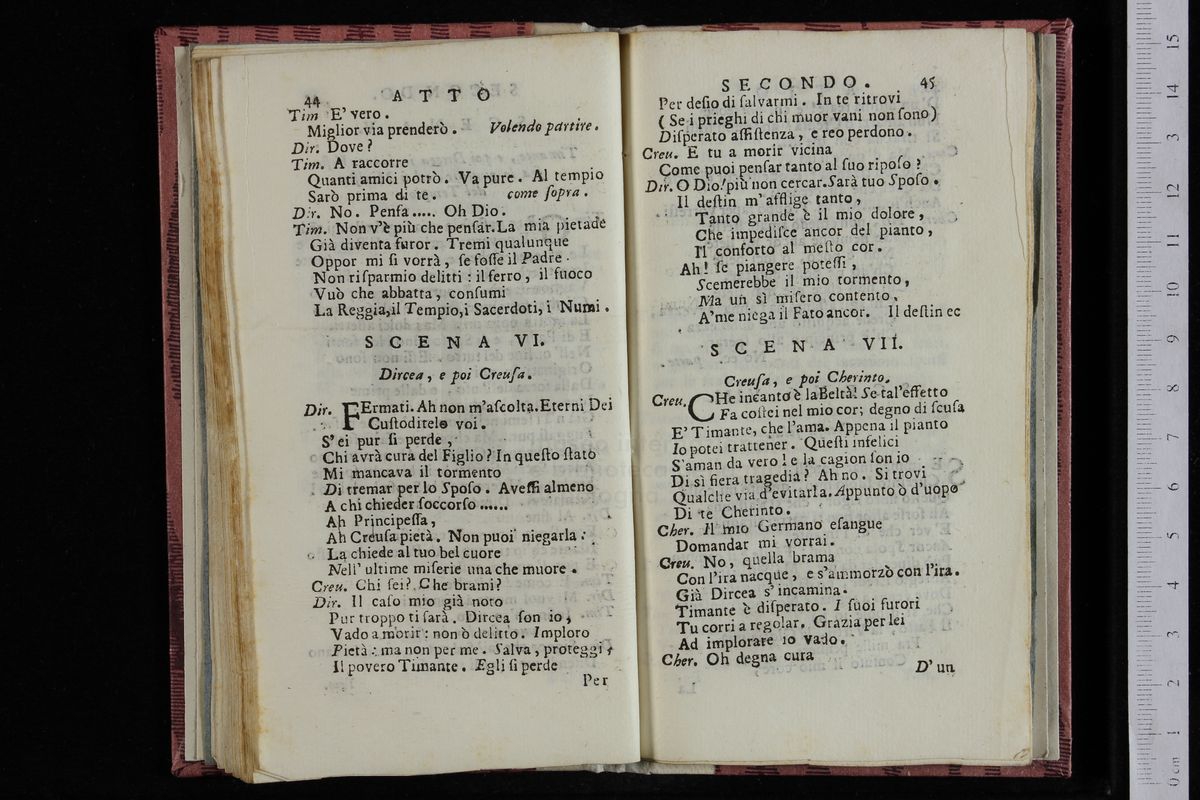 44 ATTO
Tim E' vero.
Miglior via prenderò. Volendo partire.
Dir. Dove?
Tim. A raccorre
Quanti amici potrò. Va pure. Al tempio
Sarò prima di te. come ſopra.
Dir. No. Penſa..... Oh Dio.
Tim. Non v'è più che penſar.La mia pietade
Già diventa furor. Tremi qualunque
Oppor mi ſi vorrà, ſe foſſe il Padre.
Non riſparmio delitti: il ferro, il fuoco
Vuò che abbatta, conſumi
La Reggia,il Tempio,i Sacerdoti, i Numi.
SCENA VI.
Dircea, e poi Creuſa.
Dir. FErmati. Ah non m'aſcolta.Eterni Dei
Cuſtoditelo voi.
S'ei pur ſi perde,
Chi avrà cura del Figlio? In queſto ſtato
Mi mancava il tormento
Di tremar per lo Spoſo. Aveſſi almeno
A chi chieder ſoccorſo......
Ah Principeſſa,
Ah Creuſa pietà. Non puoi niegarla:
La chiede al tuo bel cuore
Nell' ultime miſerie una che muore.
Creu. Chi ſei? Che brami?
Dir. Il caſo mio già noto
Pur troppo ti ſarà. Dircea ſon io,
Vado a morir: non ò delitto. Imploro
Pietà: ma non per me. Salva, proteggi
Il povero Timante. Egli ſi perde
Per
SECONDO. 45
Per deſio di ſalvarmi. In te ritrovi
(Se i prieghi di chi muor vani non ſono)
Diſperato aſſiſtenza, e reo perdono.
Creu. E tu a morir vicina
Come puoi penſar tanto al ſuo ripoſo?
Dir. O Dio! più non cercar.Sarà tuo Spoſo.
Il deſtin m'afflige tanto,
Tanto grande è il mio dolore,
Che impediſce ancor del pianto,
Il conforto al meſto cor.
Ah! ſe piangere poteſſi,
Scemerebbe il mio tormento,
Ma un sì miſero contento,
A'me niega il Fato ancor. Il deſtin ec
SCENA VII.
Creuſa, e poi Cherinto.
Creu. CHe incanto è la Beltà! Se tal'effetto
Fa coſtei nel mio cor; degno di ſcuſa
E' Timante, che l'ama. Appena il pianto
Io potei trattener. Queſti infelici
S'aman da vero! e la cagion ſon io
Di sì fiera tragedia? Ah no. Si trovi
Qualche via d'evitarla. Appunto ò d'uopo
Di te Cherinto.
Cher. Il mio Germano eſangue
Domandar mi vorrai.
Creu. No, quella brama
Con l'ira nacque, e s'ammorzò con l'ira.
Già Dircea s'incamina.
Timante è diſperato. I ſuoi furori
Tu corri a regolar. Grazia per lei
Ad implorare io vado.
Cher. Oh degna cura
D'un
0cm 1 2 3 4 5 6 7 8 9 10 11 12 13 14 15